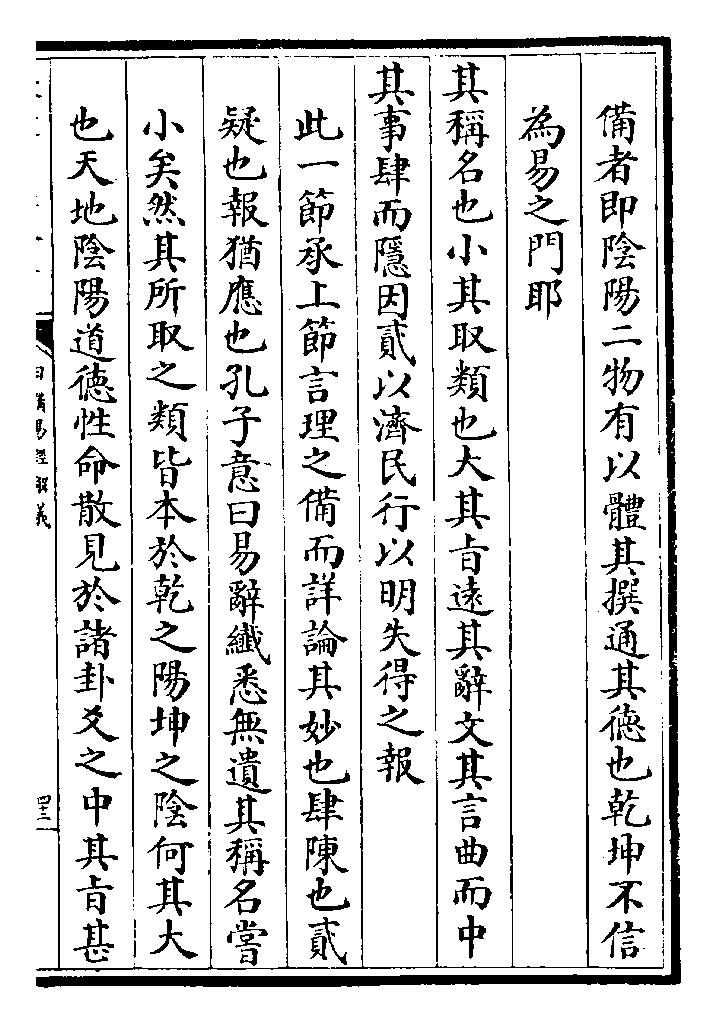 備者即陰陽二物有以體其撰通其德也乾坤不信
為易之門耶
其稱名也小其取類也大其㫖遠其辭文其言曲而中
其事肆而隱因貳以濟民行以明失得之報
此一節承上節言理之備而詳論其妙也肆陳也貳
疑也報猶應也孔子意曰易辭纖悉無遺其稱名嘗
小矣然其所取之類皆本於乾之陽坤之陰何其大
也天地陰陽道德性命散見於諸卦爻之中其㫖甚
日講易經解義
四十三